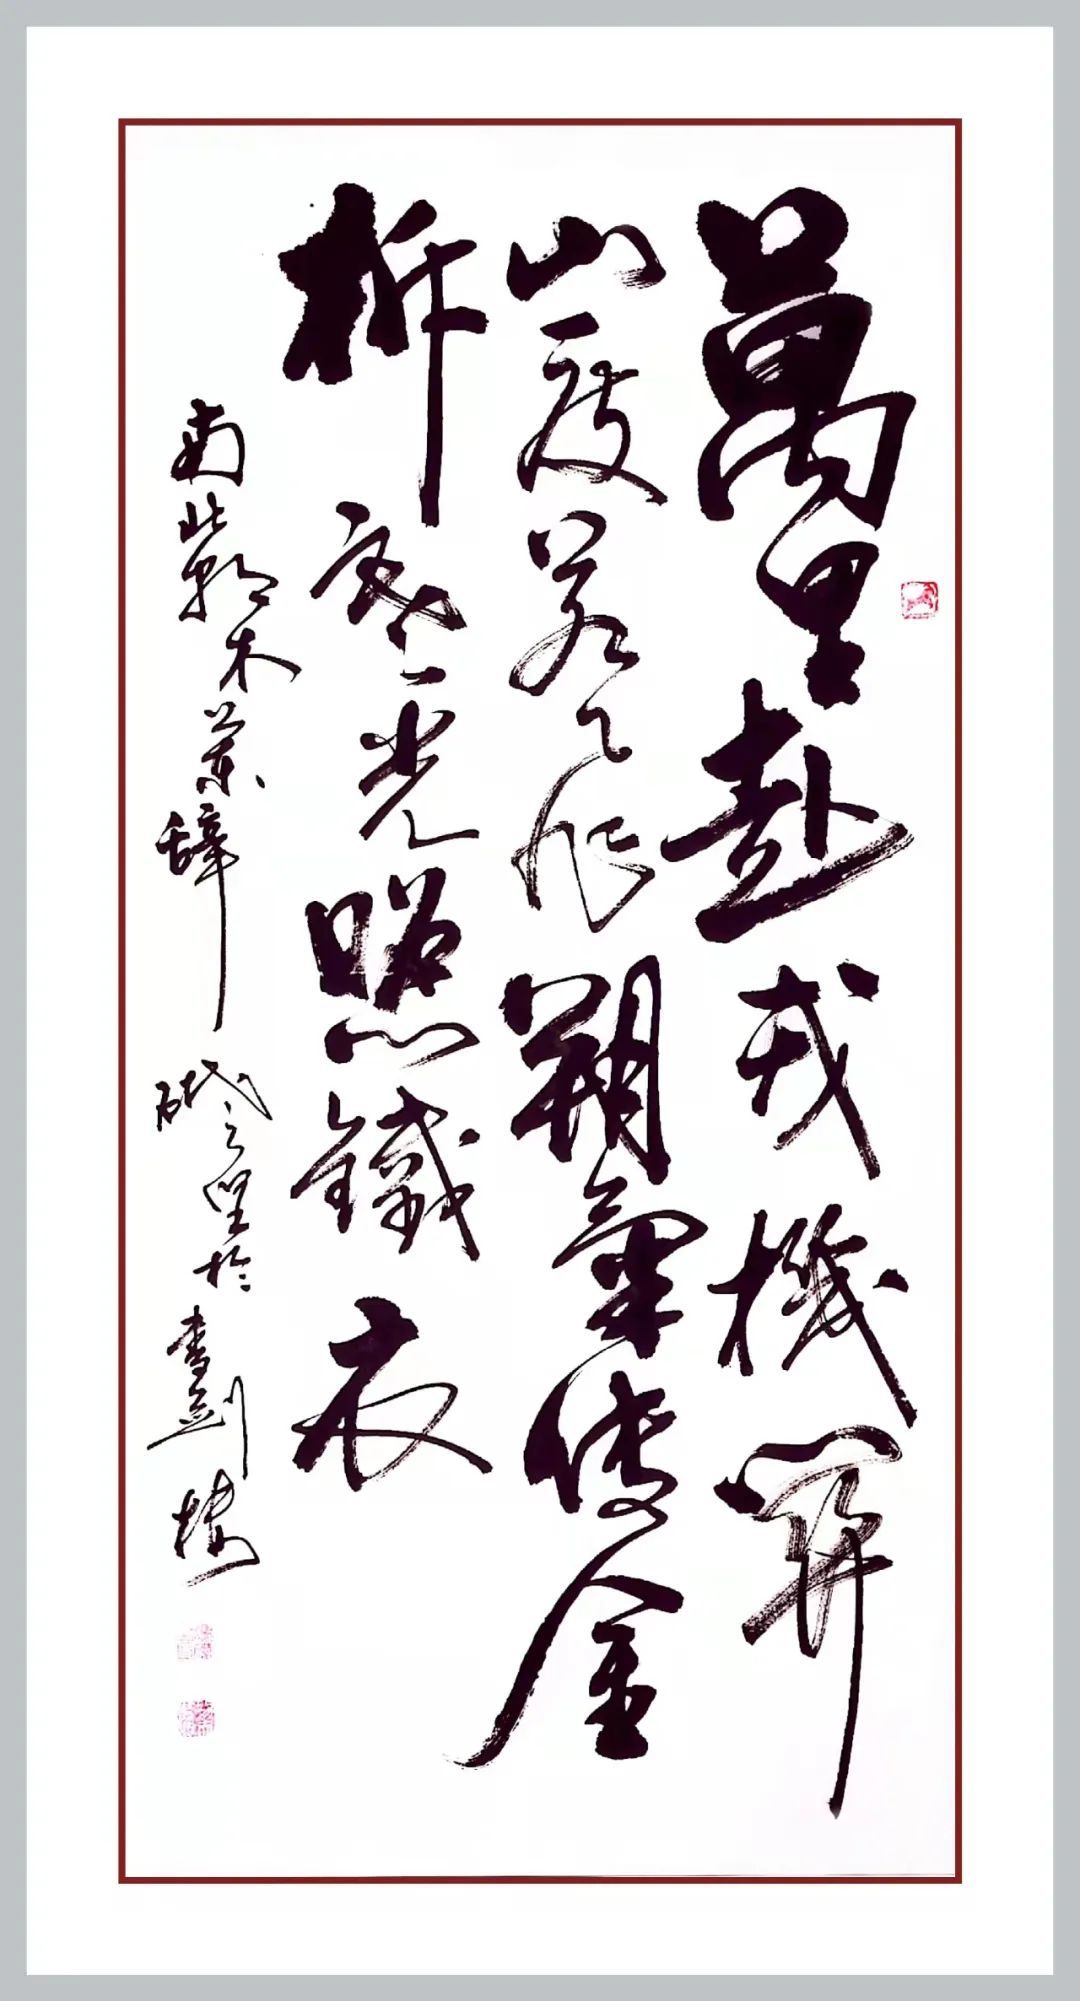 萬里赴戎機關
山度若飛朔氣傳金
柝寒光照鐵衣
南北朝木蘭辭 於書劍樓